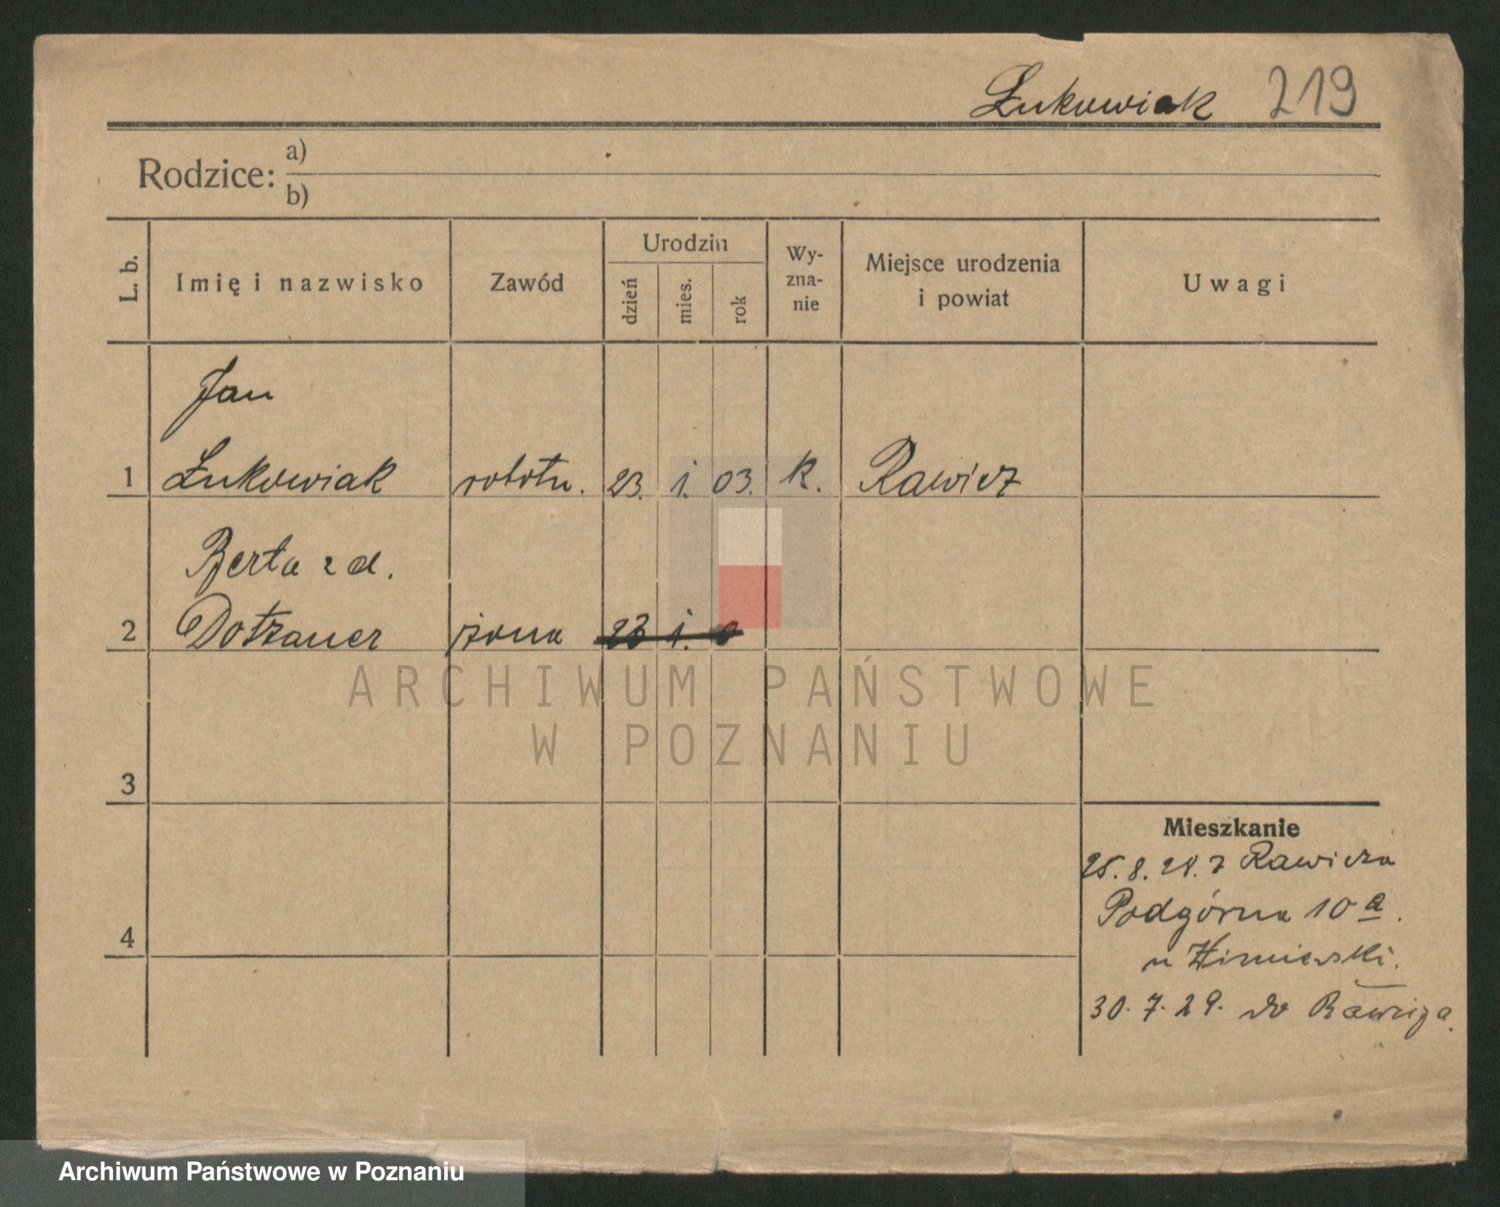 Łukowiak 219
Rodzice: a)
b)
L. b. Imię i nazwisko Zawód Urodzin dzień mies. rok Wy-zna-nie Miejsce urodzenia i powiat Uwagi
Jan
1 Łukowiak robotn. 23. 1. 03. k. Rawicz
Berta z d.
2 Dotzauer żona 23 1. 0
ARCHIWUM PAŃSTWOWE
W POZNANIU
3
Mieszkanie
25. 8. 28. z Rawicza
Podgórna 10 a.
4
u
30. 7. 29. do Rawicza
Archiwum Państwowe w Poznaniu